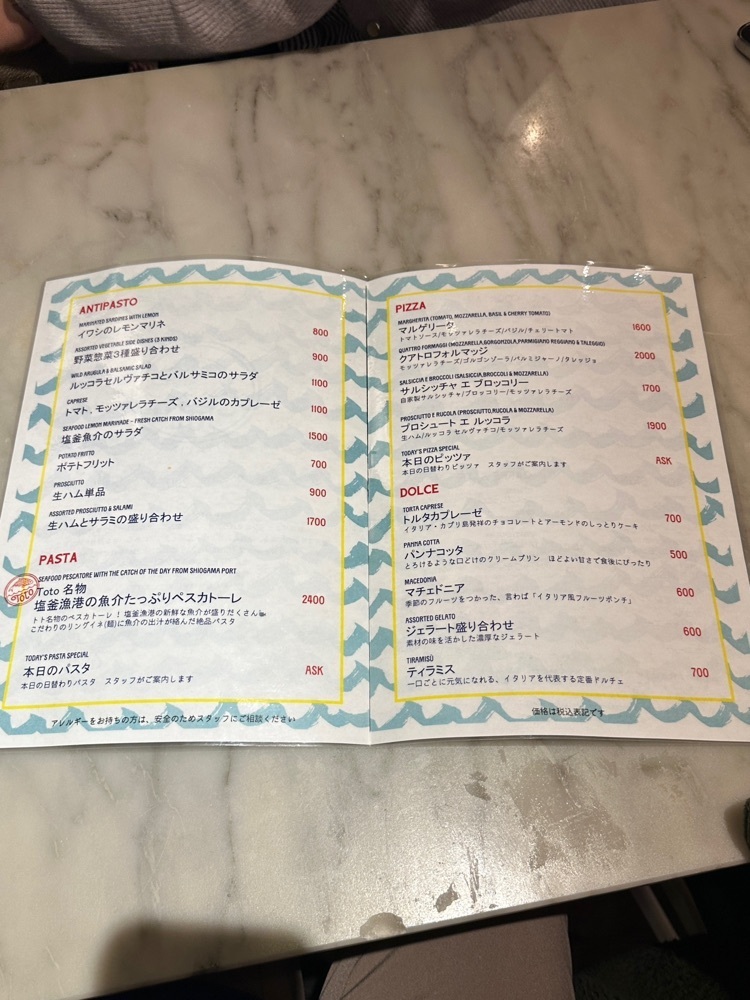 ANTIPASTO
MARINATED SARDINES WITH LEMON
イワシのレモンマリネ 800
ASSORTED VEGETABLE SIDE DISHES (3 KINDS)
野菜惣菜3種盛り合わせ 900
WILD ARUGULA & BALSAMIC SALAD
ルッコラセルヴァチコとバルサミコのサラダ 1100
CAPRESE
トマト、モッツァレラチーズ、バジルのカプレーゼ 1100
SEAFOOD LEMON MARINADE – FRESH CATCH FROM SHIOGAMA
塩釜魚介のサラダ 1500
POTATO FRITTO
ポテトフリット 700
PROSCIUTTO
生ハム単品 900
ASSORTED PROSCIUTTO & SALAMI
生ハムとサラミの盛り合わせ 1700
PASTA
SEAFOOD PESCATORE WITH THE CATCH OF THE DAY FROM SHIOGAMA PORT
Toto 名物
塩釜漁港の魚介たっぷりペスカトーレ 2400
トト名物のペスカトーレ！塩釜漁港の新鮮な魚介が盛りだくさん
こだわりのリングイネ(麺)に魚介の出汁が絡んだ絶品パスタ
TODAY'S PASTA SPECIAL
本日のパスタ ASK
本日の日替わりパスタ スタッフがご案内します
アレルギーをお持ちの方は、安全のためスタッフにご相談ください
PIZZA
MARGHERITA (TOMATO, MOZZARELLA, BASIL & CHERRY TOMATO)
マルゲリータ 1600
トマトソース/モッツァレラチーズ/バジル/チェリートマト
QUATTRO FORMAGGI (MOZZARELLA,GORGONZOLA,PARMIGIANO REGGIANO & TALEGGIO)
クアトロフォルマッジ 2000
モッツァレラチーズ/ゴルゴンゾーラ/パルミジャーノ/タレッジョ
SALSICCIA E BROCCOLI (SALSICCIA,BROCCOLI & MOZZARELLA)
サルシッチャ エ ブロッコリー 1700
自家製サルシッチャ/ブロッコリー/モッツァレラチーズ
PROSCIUTTO E RUCOLA (PROSCIUTTO,RUCOLA & MOZZARELLA)
プロシュート エ ルッコラ 1900
生ハム/ルッコラ セルヴァチコ/モッツァレラチーズ
TODAY'S PIZZA SPECIAL
本日のピッツァ ASK
本日の日替わりピッツァ スタッフがご案内します
DOLCE
TORTA CAPRESE
トルタカプレーゼ 700
イタリア・カプリ島発祥のチョコレートとアーモンドのしっとりケーキ
PANNA COTTA
パンナコッタ 500
とろけるような口どけのクリームプリン ほどよい甘さで食後にぴったり
MACEDONIA
マチェドニア 600
季節のフルーツをつかった、言わば「イタリア風フルーツポンチ」
ASSORTED GELATO
ジェラート盛り合わせ 600
素材の味を活かした濃厚なジェラート
TIRAMISÙ
ティラミス 700
一口ごとに元気になれる、イタリアを代表する定番ドルチェ
価格は税込表記です